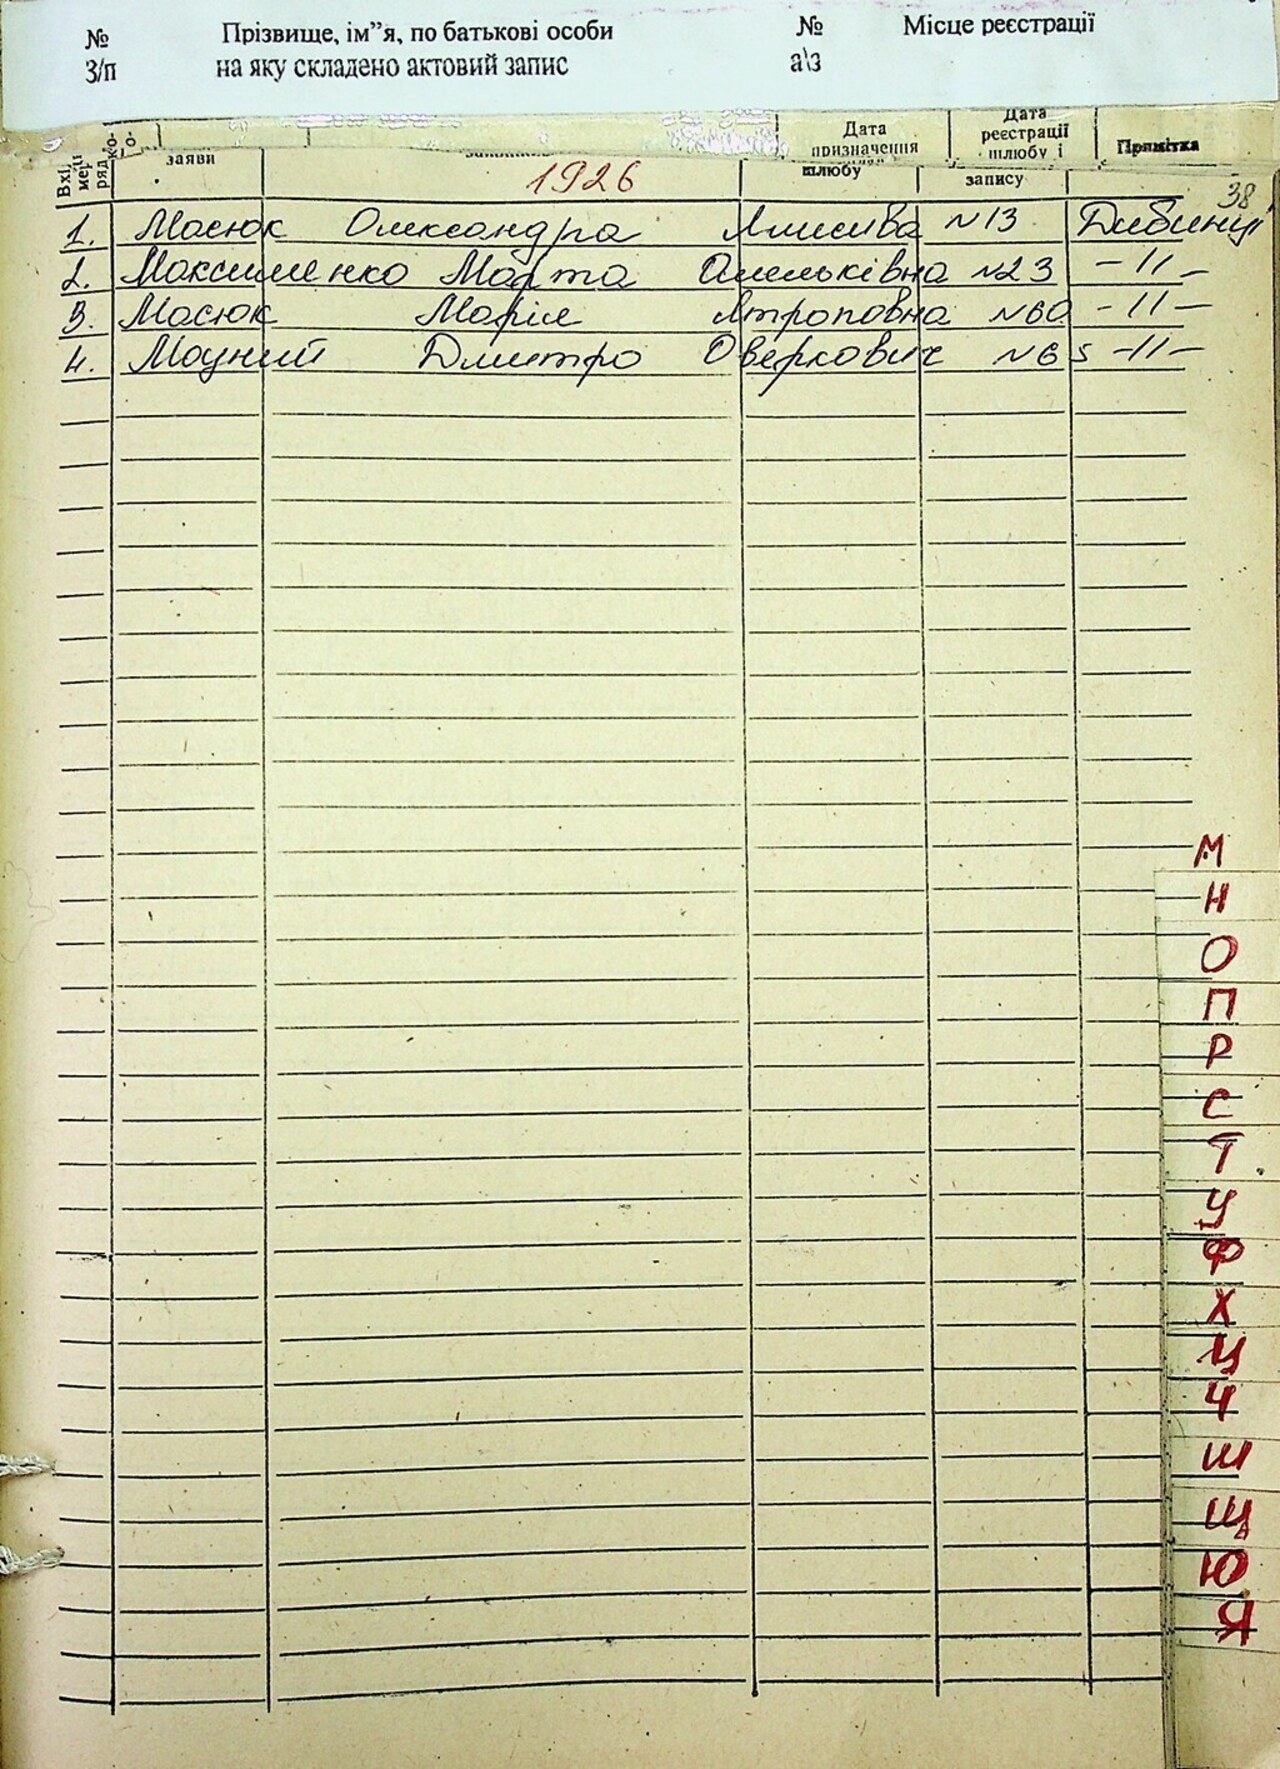 № Прізвище, ім”я, по батькові особи № Місце реєстрації
З/п на яку складено актовий запис а\з
Дата призначення шлюбу
Дата реєстрації шлюбу і запису
Примітка
заяви
1926
38
1. Масюк Олександра №13 Дибинці
2. Максименко Марта Омельківна №23 -11-
3. Масюк Марія Ятроповна №60 -11-
4. Моцний Дмитро Оверкович №65 -11-
М
Н
О
П
Р
С
Т
У
Ф
Х
Ц
Ч
Ш
Щ
Ю
Я